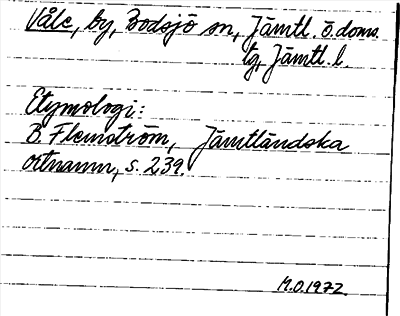 Våle, by, Bodsjö sn, Jämtl. ö. doms.
tg, Jämtl. l.
Etymologi:
B. Flemström, Jämtländska
ortnamn, s. 239.
M.O. 1972